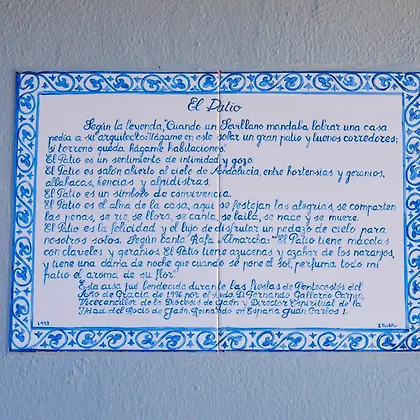 El Patio
Según la leyenda,"Cuando un Sevillano mandaba labrar una casa
pedía a su arquitecto: Hágame en este solar un gran patio y buenos corredores;
si terreno queda hágame habitaciones".
El Patio es un sentimiento de intimidad y gozo.
El Patio es salón abierto al cielo de Andalucía, entre hortensias y geranios,
albahacas, kencias y alpidistras.
El Patio es un símbolo de convivencia.
El Patio es el alma de la casa, aquí se festejan las alegrías, se comparten
las penas, se ríe, se llora, se canta, se baila, se nace y se muere.
El Patio es la felicidad y el lujo de disfrutar un pedazo de cielo para
nosotros solos. Según canta Rafa Almarcha: "El Patio tiene macetas
con claveles y geranios. El Patio tiene azucenas y azahar de los naranjos,
y tiene una dama de noche que cuando se pone el sol, perfuma todo mi
patio el aroma de su flor".
Esta casa fué bendecida durante las fiestas de Pentecostés del
Año de Gracia de 1996 por el Rvdo. D. Fernando Gallardo Carpio,
Vicecanciller de la Diócesis de Jaén y Director Espiritual de la
Hdad. del Rocío de Jaén, Reinando en España Juan Carlos I.